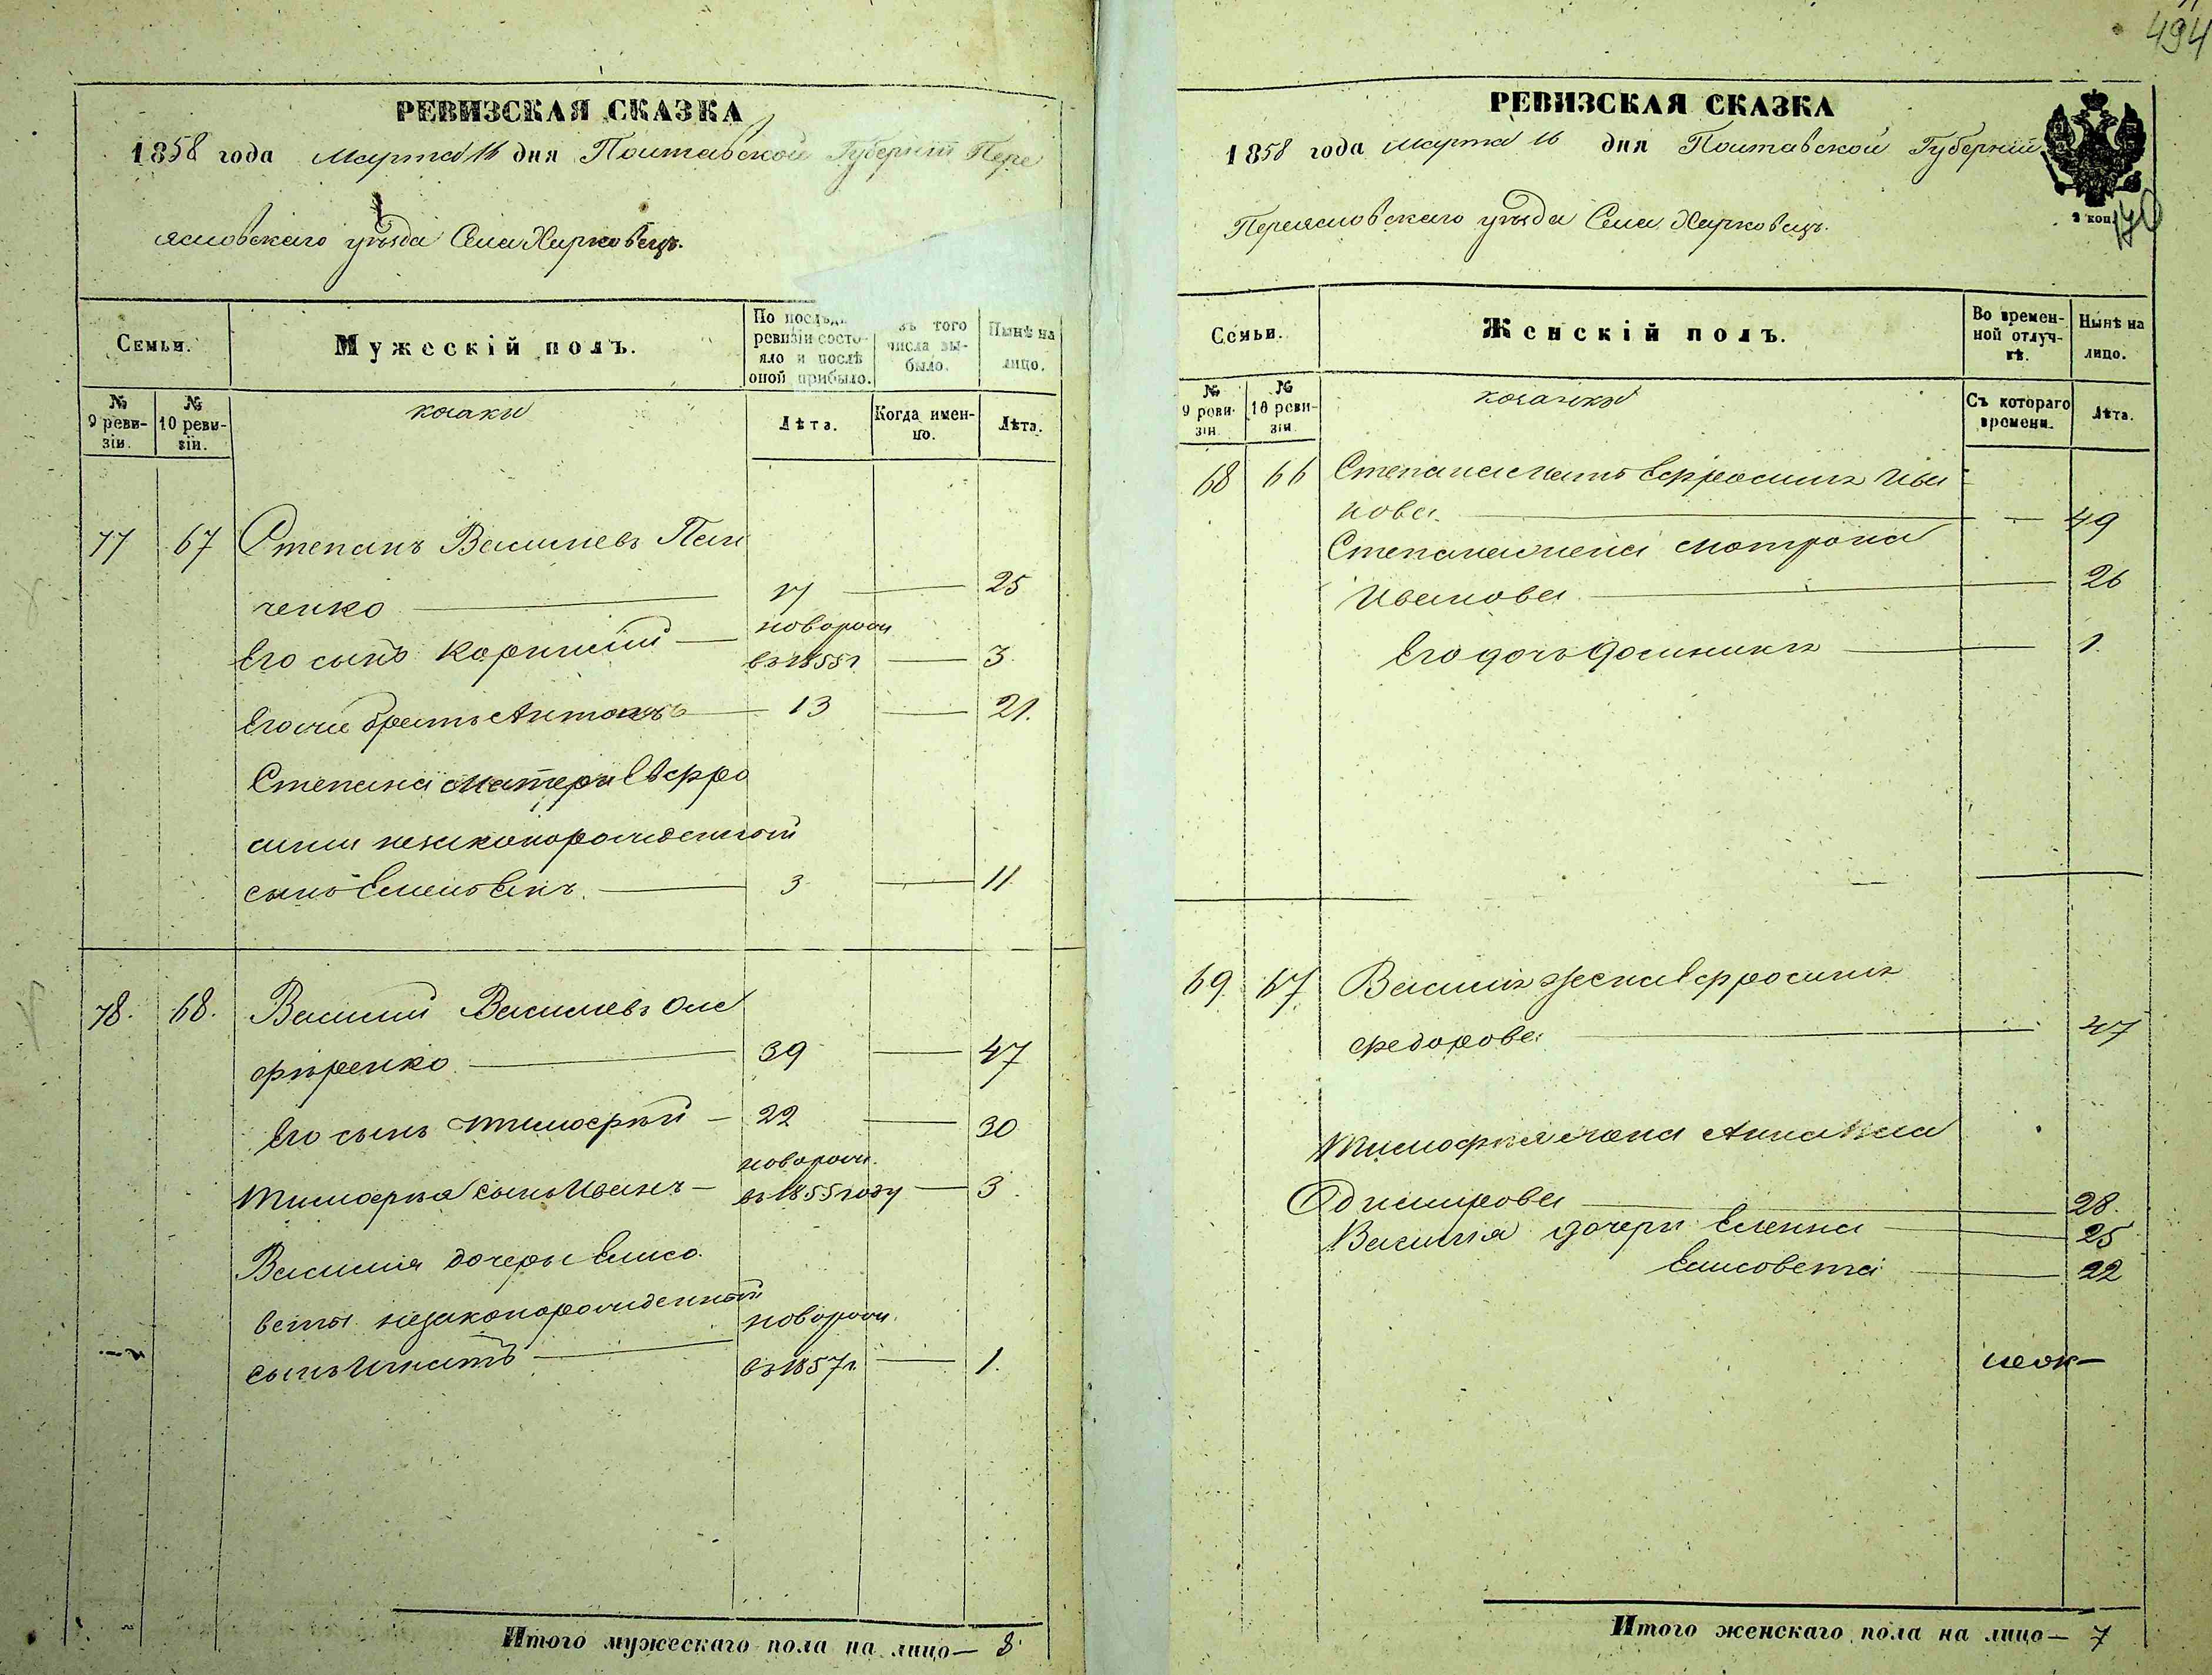 494
РЕВИЗСКАЯ СКАЗКА
1858 года Марта 16 дня Полтавской Губерніи Пере
яславскаго уѣзда Села Харковецъ.
Семьи.
Мужескій полъ.
По послѣд
ревизіи состо-
яло и послѣ
оной прибыло.
зъ того
числа вы-
было.
Нынѣ на
лицо.
№
9 реви-
зіи.
№
10 реви-
зіи.
козаки
Лѣта.
Когда имен-
но.
Лѣта.
77 67 Степанъ Васильевъ Пан
ченко 17 25
Его сынъ Корнилій новорож
въ 1855 г. 3
Его же братъ Антонъ 13 21.
Степана матери Евфро
синіи незаконорожденный
сынъ 3 11.
78. 68. Василій Васильевъ Оле
фѣренко 39 47
Его сынъ Тимофѣй 22 30
Тимофѣя сынъ Иванъ новорож.
въ 1855 году 3
Василія дочери Елисо
веты незаконорожденный
сынъ Игнатъ новорож.
въ 1857 г. 1.
Итого мужескаго пола на лицо — 8
РЕВИЗСКАЯ СКАЗКА
1858 года Марта 16 дня Полтавской Губерніи
Переяславскаго уѣзда Села Харковецъ.
2 коп
Семьи.
Женскій полъ.
Во времен-
ной отлуч-
кѣ.
Нынѣ на
лицо.
№
9 реви-
зіи.
№
10 реви-
зіи.
козачки
Съ котораго
времени.
Лѣта.
68 66 Степана мать Ефросинія Ива
нова 49
Степана жена Мотрона
Иванова 26
Его дочь Домникія 1.
69. 67 Василія жена Ефросинія
Федорова 47
Тимофѣя жена Анна Вла
димирова 28.
Василія дочери Елена 25
Елисовета 22
Итого женскаго пола на лицо — 7